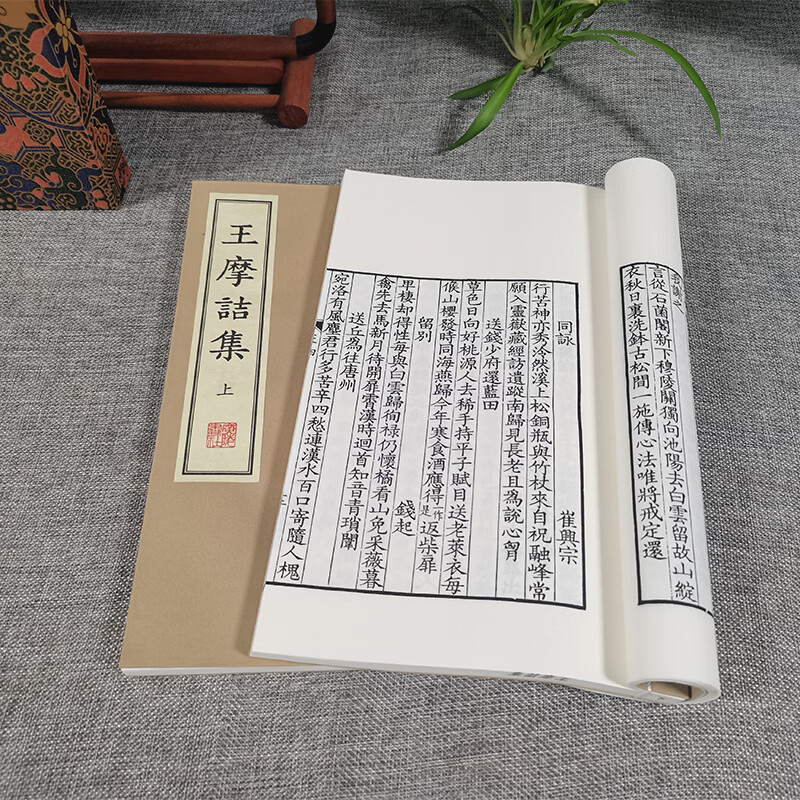 王摩詰集
上
言從石菌閣新下穆陵關獨向池陽去白雲留故山綻
衣秋日裏洗鉢古松間一施傳心法唯將戒定還
同詠 崔興宗
行苦神亦秀泠然溪上松銅瓶與竹杖來自祝融峰常
願入靈嶽藏經訪遺蹤南歸見長老且爲說心胷
送錢少府還藍田
草色日向好桃源人去稀手持平子賦目送老萊衣每
候山櫻發時同海燕歸今年寒食酒應得一作是返柴扉
留別 錢起
卑棲却得性每與白雲歸徇祿仍懷橘看山免采薇暮
禽先去馬新月待開扉霄漢時迴首知音青瑣闈
送丘爲往唐州
宛洛有風塵君行多苦辛四愁連漢水百口寄隨人槐